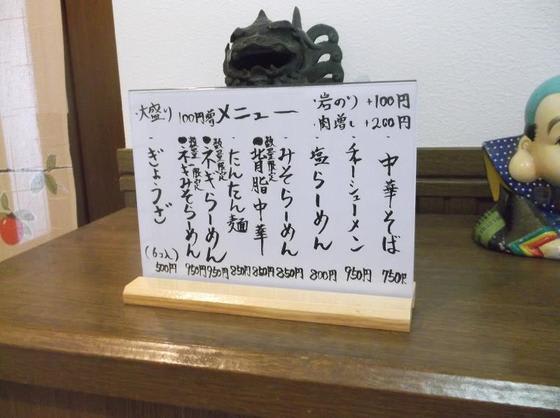 ・大盛り 100円増
メニュー
・岩のり +100円
・肉増し +200円
・中華そば 750円
・チャーシューメン 950円
・塩らーめん 800円
・みそらーめん 850円
●背脂中華 数量限定 850円
・たんたん麺 850円
●ネギらーめん 数量限定 950円
●ネギみそらーめん 数量限定 950円
・ぎょうざ (6コ入) 500円